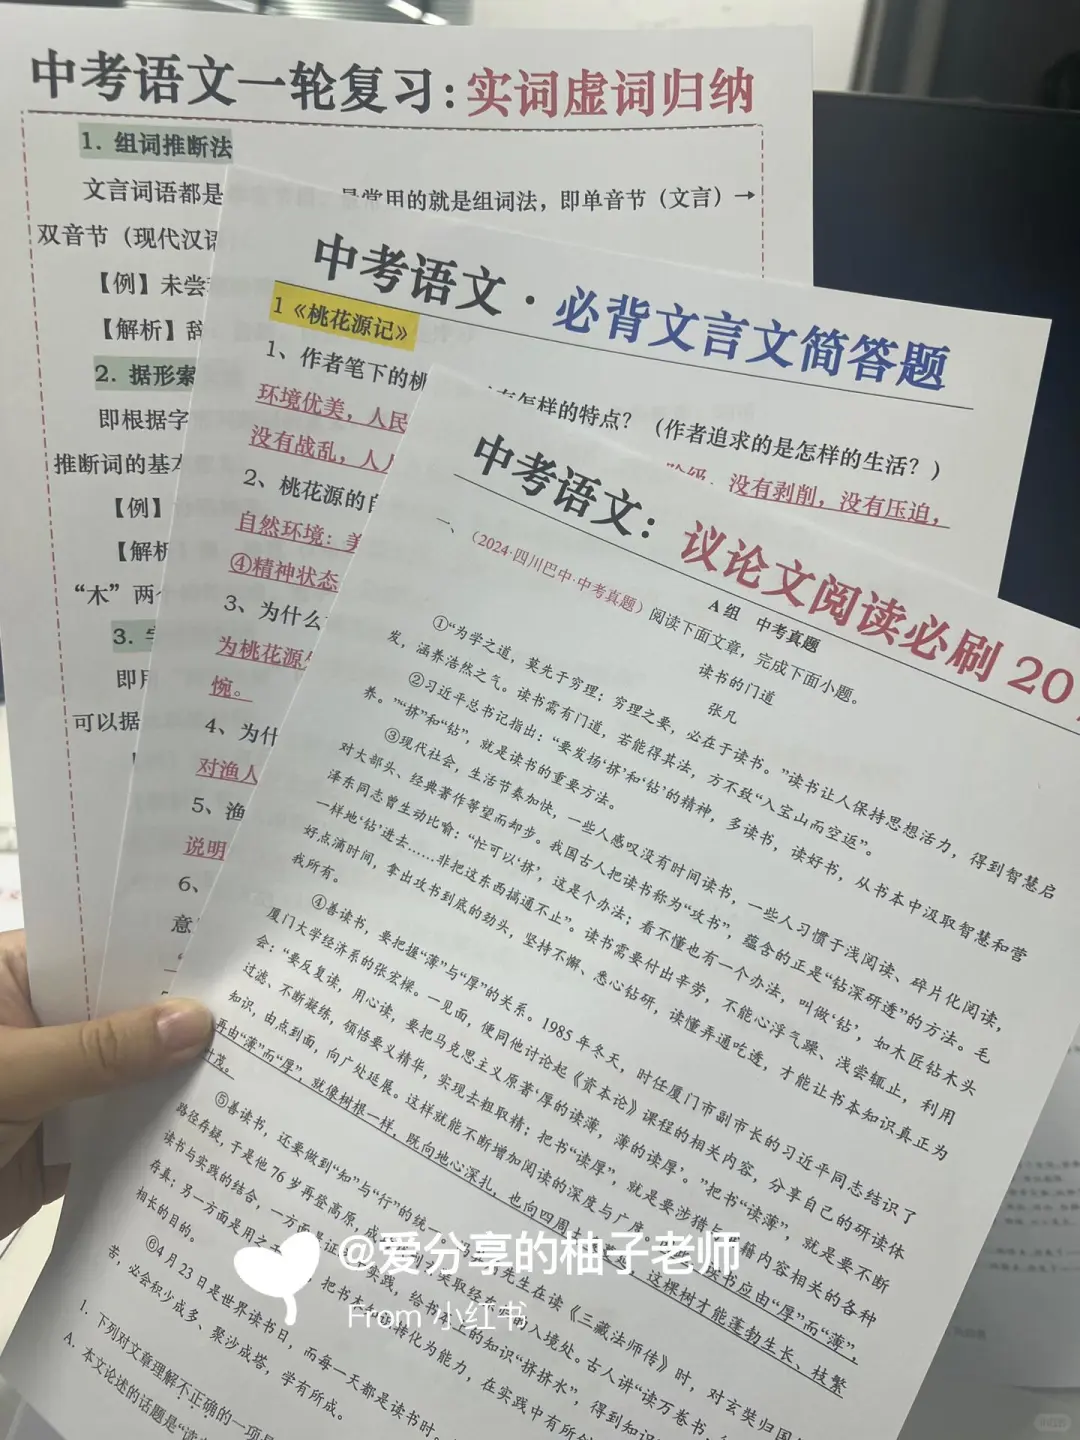 中考语文一轮复习：实词虚词归纳
1. 组词推断法
文言词语都是
常用的就是组词法，即单音节（文言）→
双音节（现代汉语
【例】未尝
【解析】辞
2. 据形索
即根据字
推断词的基本
【例】
【解析
“木”两
3.
即用
可以据
中考语文·必背文言文简答题
1《桃花源记》
1、作者笔下的桃
有怎样的特点？（作者追求的是怎样的生活？）
环境优美，人民
阶级，没有剥削，没有压迫，
没有战乱，人人
2、桃花源的自
自然环境：美
④精神状态
3、为什么
为桃花源
惋。
4、为什
对渔人
5、渔
说明
6、
意
中考语文：议论文阅读必刷 20
A 组 中考真题
一、（2024·四川巴中·中考真题）阅读下面文章，完成下面小题。
读书的门道
张凡
①“为学之道，莫先于穷理；穷理之要，必在于读书。”读书让人保持思想活力，得到智慧启
发，涵养浩然之气。读书需有门道，若能得其法，方不致“入宝山而空返”。
②习近平总书记指出：“要发扬‘挤’和‘钻’的精神，多读书，读好书，从书本中汲取智慧和营
养。”“挤”和“钻”，就是读书的重要方法。
③现代社会，生活节奏加快，一些人感叹没有时间读书，一些人习惯于浅阅读、碎片化阅读，
对大部头、经典著作等望而却步。我国古人把读书称为“攻书”，蕴含的正是“钻深研透”的方法。毛
泽东同志曾生动比喻：“忙可以‘挤’，这是个办法；看不懂也有一个办法，叫做‘钻’，如木匠钻木头
一样地‘钻’进去……非把这东西搞通不止”。读书需要付出辛劳，不能心浮气躁、浅尝辄止，利用
好点滴时间，拿出攻书到底的劲头，坚持不懈、悉心钻研，读懂弄通吃透，才能让书本知识真正为
我所有。
④善读书，要把握“薄”与“厚”的关系。1985 年冬天，时任厦门市副市长的习近平同志结识了
厦门大学经济系的张宏樑。一见面，便同他讨论起《资本论》课程的相关内容，分享自己的研读体
会：“要反复读，用心读，要把马克思主义原著‘厚的读薄，薄的读厚’。”把书“读薄”，就是要不断
过滤、不断凝练，领悟要义精华，实现去粗取精；把书“读厚”，就是要涉猎与书籍内容相关的各种
知识，由点到面，向广处延展。这样就能不断增加阅读的深度与广度。
书应由“厚”而“薄”，
再由“薄”而“厚”，就像树根一样，既向地心深扎，也向四周
这棵树才能蓬勃生长、枝繁
叶茂。
⑤善读书，还要做到“知”与“行”的统一。
先生在读《三藏法师传》时，对玄奘归国
路径存疑，于是他 76 岁再登高原，成
取经东归的入境处。古人讲“读万卷书，
读书与实践的结合，一方面是
实践，给书本上的知识“挤挤水”，得到知识
存真；另一方面是用之于
把书本知识转化为能力，在实践中有所创
相长的目的。
⑥4 月 23 日是世界读书日，而每一天都是读书时。
苦，必会积少成多、聚沙成塔，学有所成。
1. 下列对文章理解不正确的一项是
A. 本文论述的话题是“读
@爱分享的柚子老师
From 小红书